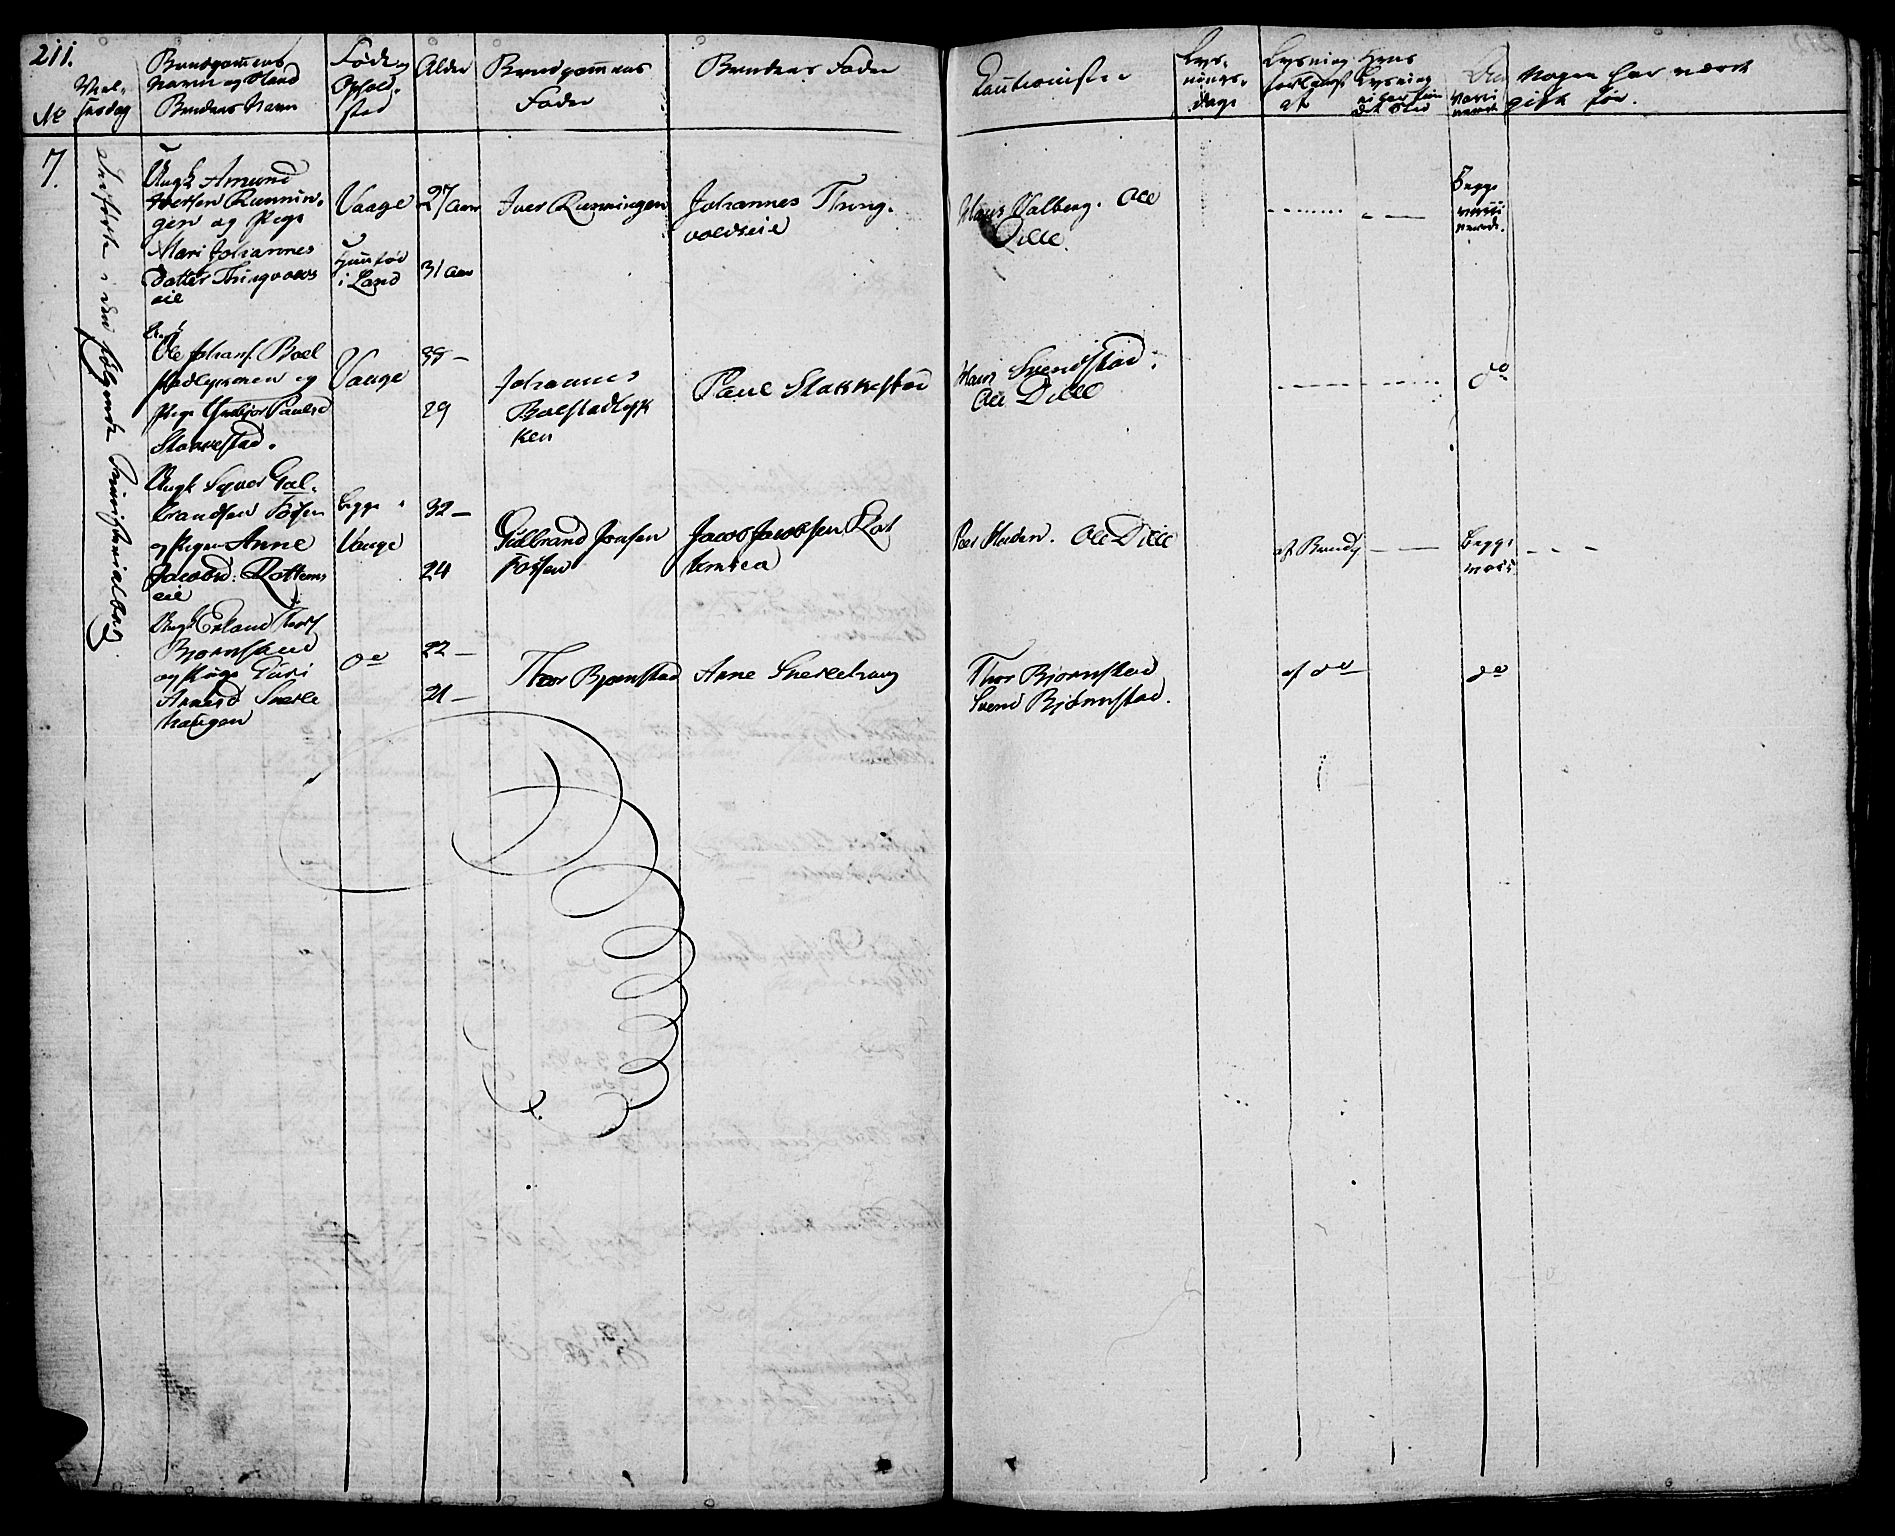 211.
No
Viel-
sesdag
Brudgommens
Navn og Stand
Brudens Navn
Føde og
Ophol-
sted
Alder
Brudgommens
Fader
Brudens Fader
Cautionister
Lys-
nings-
dage
Lysning
forlangt
af
Hvor
Lysning
Om
vacci
nerede
Nogen har været
gift før.
7.
Indførte i den følgende Ministerialbog
Ungk Amund
Iversen Runnin-
gen og Pige
Mari Johannes
datter Tringvolds
eie
Vaage
født
i Land
27 Aar
31 Aar
Iver Runningen
Johannes Tring-
voldseie
Hans Valberg. Ole
Dille.
Begge
vacci
nerede.
Ole Johans. Bael
stadlykken og
Pige Paulsd
Stakkestad.
Vaage
38 —
29
Johannes
Balstadlyk
ken
Paul Stakkestad
Hans Svendstad.
Ole Dille
do
Ungk Syver Gul-
brandsen Fossen
og Pigen Anne
Jacobsd: Kottems
eie
begge i
Vaage
32 —
24
Gulbrand Jonsen
Fossen
Jacob Jacobsen Kot
Peer Heden. Ole Dille
af Brudg
begge
vacc
Ungk Erland Thors
Bjørnstad
og Pige Guri
Arnesd Snerle
haugen
do
22 —
21 —
Thor Bjørnstad
Arne Snerlehaug
Thor Bjørnstad
Svend Bjørnstad.
af do
do